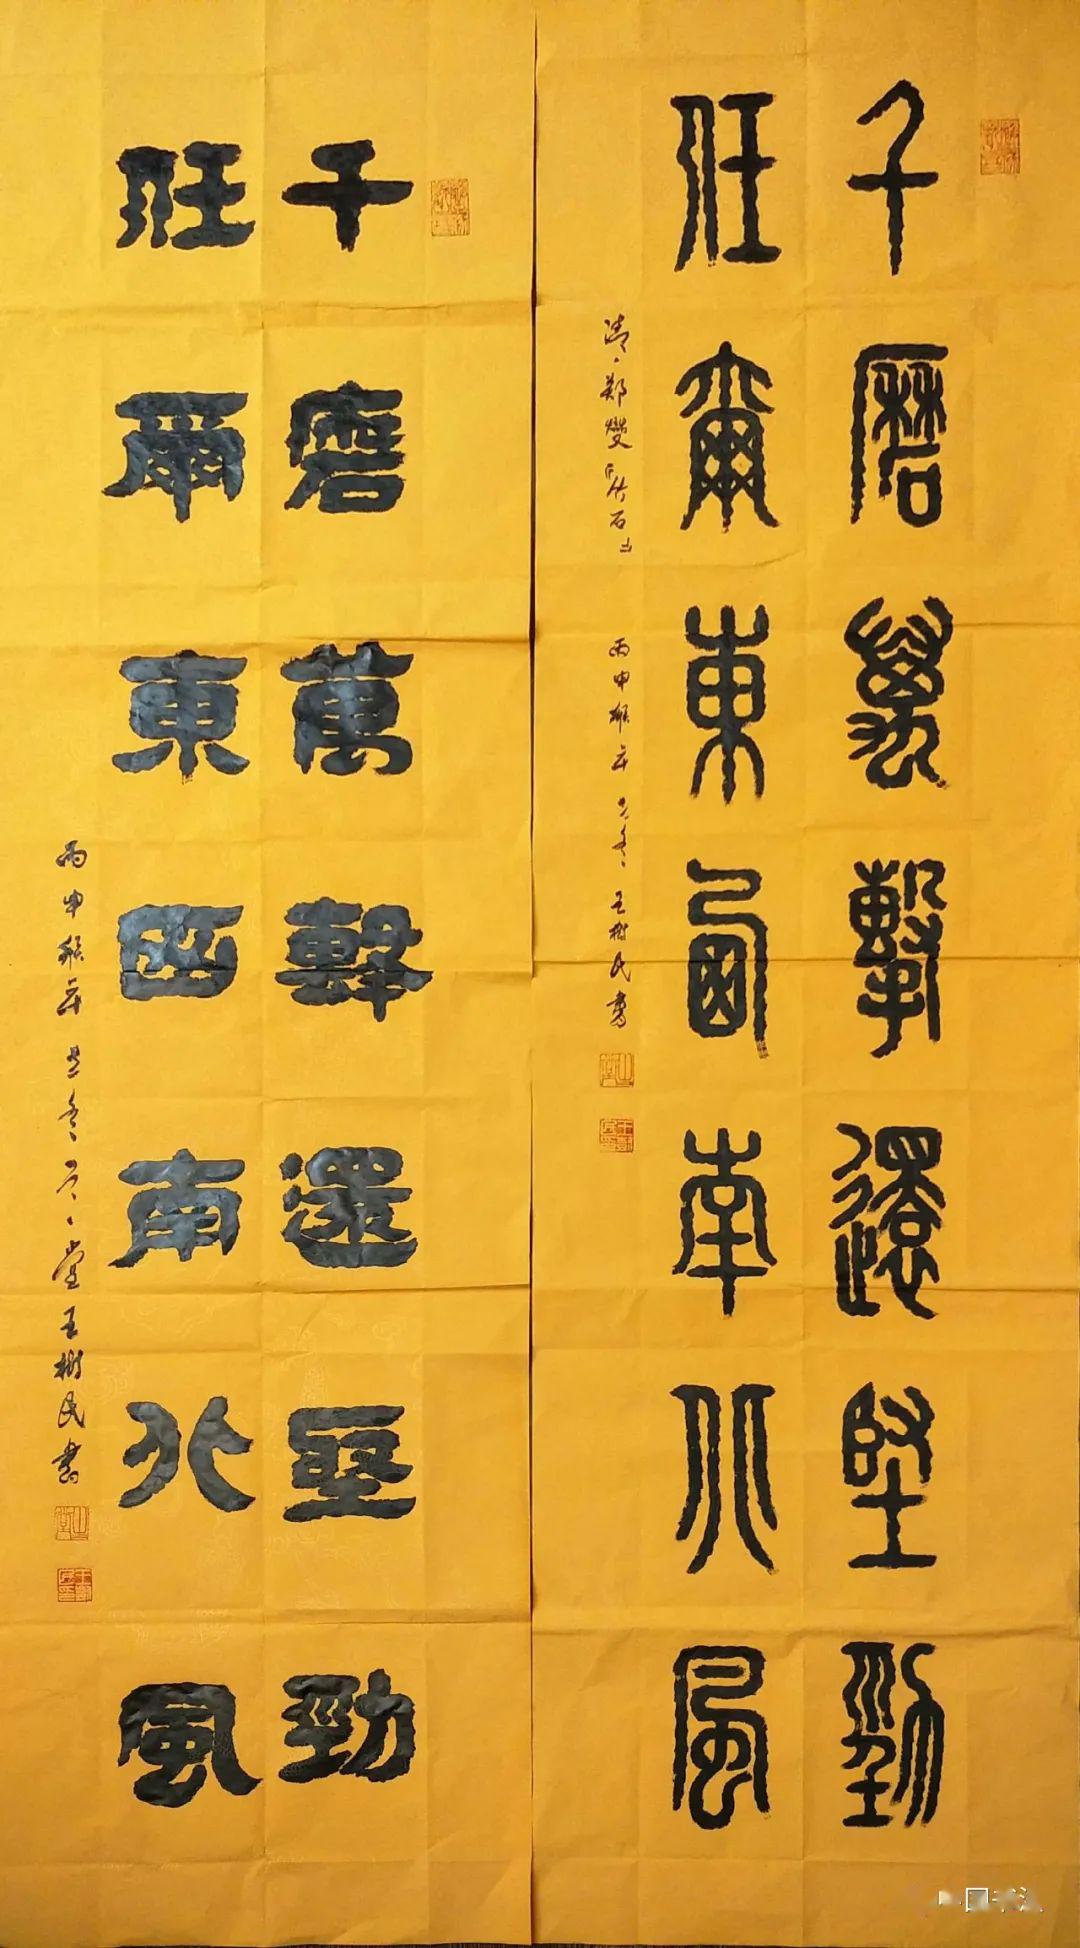 千磨萬擊還堅勁
任爾東西南北風
清 鄭燮 竹石
丙申猴年 之冬 王樹民書
千磨萬擊還堅勁
任爾東西南北風
丙申猴年 之冬 堂 王樹民書